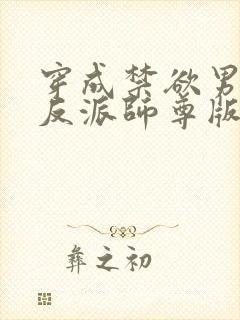 穿成禁欲男
反派師尊版
彝之初